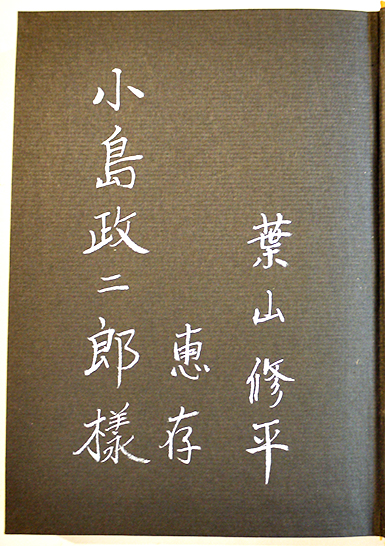 葉山修平
恵存
小島政二郎様